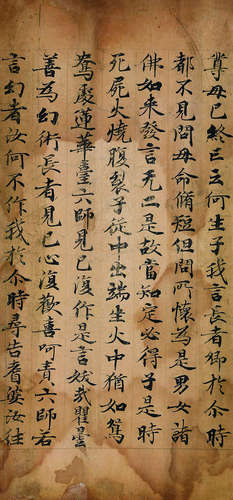 尊母已終已云何生子我言長者卿於尒時
都不見問母命脩短但問所懷為是男女諸
佛如來發言无二是故當知定必得子是時
死屍火燒腹裂子從中出端坐火中猶如鴛
鴦處蓮華臺六師見已復作是言妖哉瞿曇
善為幻術長者見已心復歡喜呵責六師若
言幻者汝何不作我於尒時尋告耆婆汝往